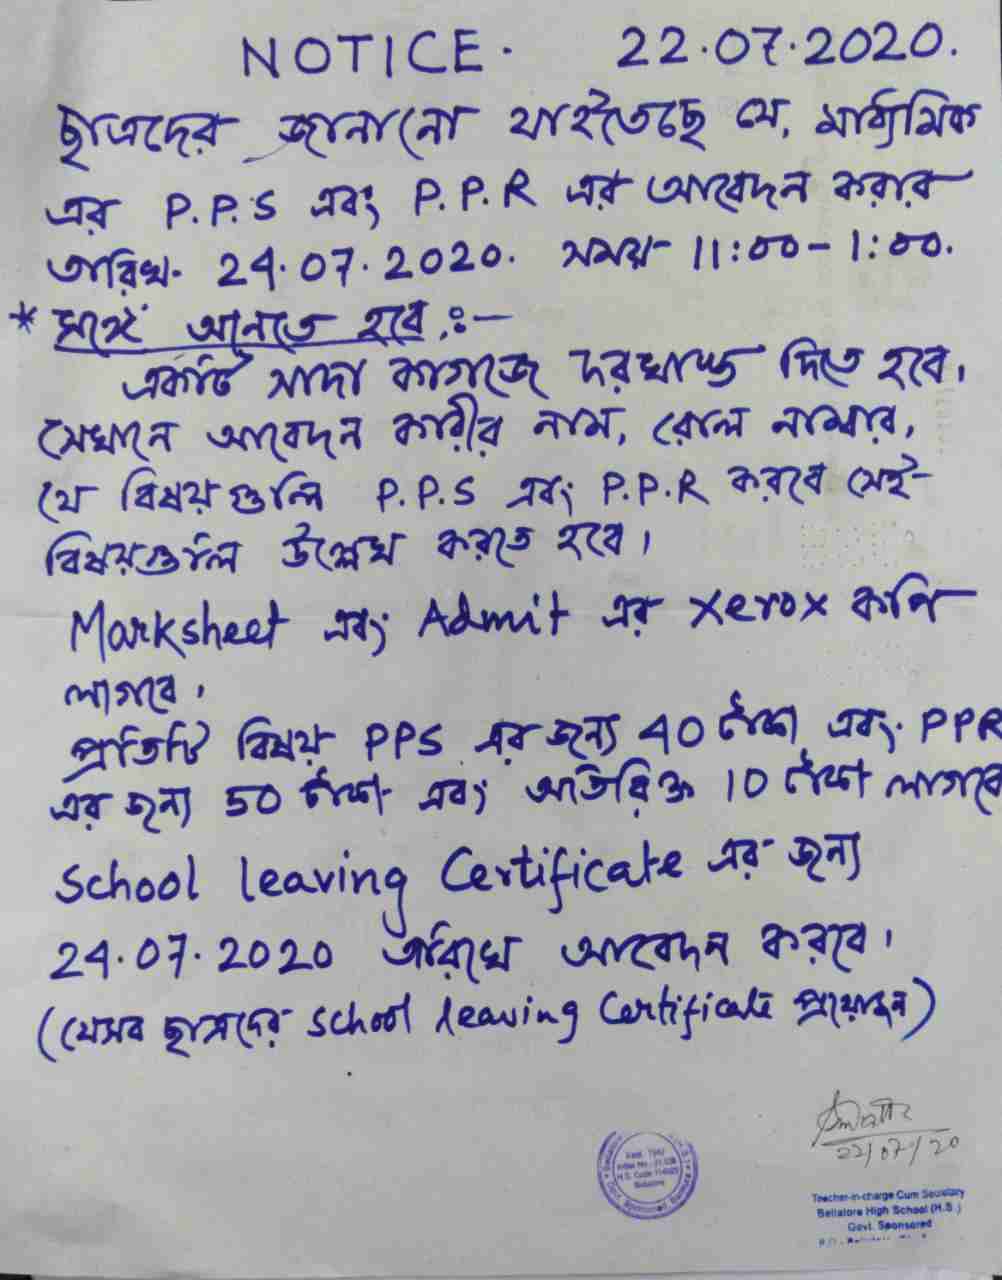 NOTICE. 22.07.2020.
ছাত্রদের জানানো যাইতেছে যে, মাধ্যমিক
এর P.P.S এবং P.P.R এর আবেদন করার
তারিখ. 24.07.2020. সময় 11:00 - 1:00.
* সঙ্গে আনতে হবে,ঃ-
একটি সাদা কাগজে দরখাস্ত দিতে হবে।
সেখানে আবেদন কারীর নাম, রোল নাম্বার,
যে বিষয় গুলি P.P.S এবং P.P.R করবে সেই
বিষয়গুলি উল্লেখ করতে হবে।
Marksheet এবং Admit এর xerox কপি
লাগবে।
প্রতিটি বিষয় PPS এর জন্য 40 টাকা এবং PPR
এর জন্য 50 টাকা এবং অতিরিক্ত 10 টাকা লাগবে
School leaving Certificate এর জন্য
24.07.2020 তারিখে আবেদন করবে।
(যেসব ছাত্রদের school leaving Certificate প্রয়োজন)
22/07/20
Teacher-in-charge Cum Secretary
Bellatore High School (H.S.)
Govt. Sponsored